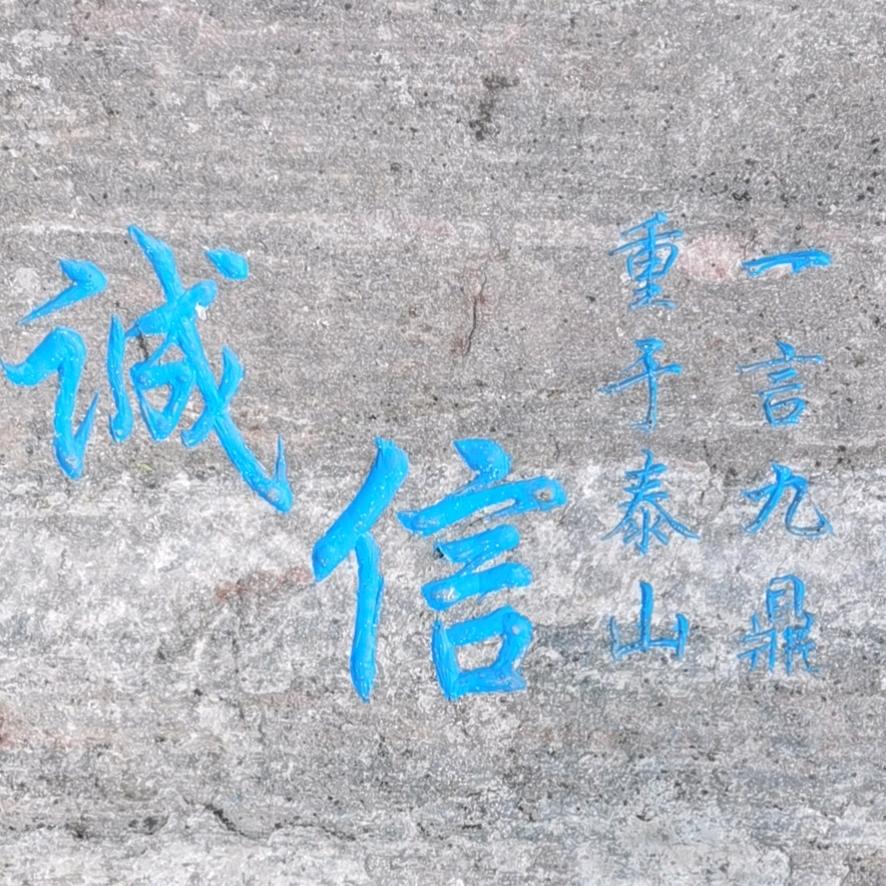 一言九鼎
重于泰山
诚信